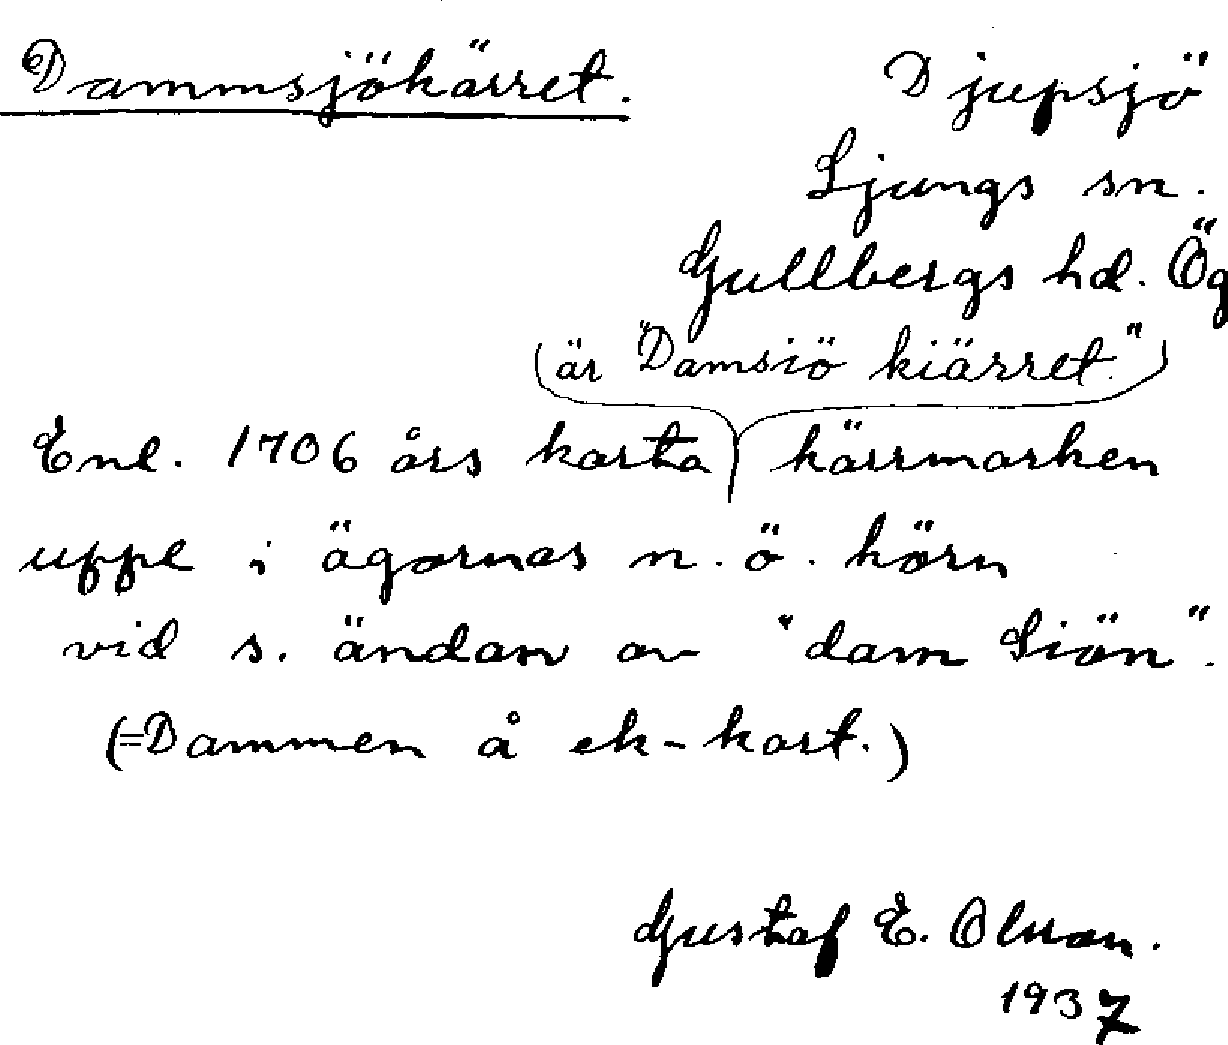 Dammsjökärret.
Djupsjö
Ljungs sn.
Gullbergs hd. Ög
är "Damsiö kiärret."
Enl. 1706 års karta kärrmarken
uppe i ägornas n.ö. hörn
vid s. ändan av "dam Siön".
(=Dammen å ek-kart.)
Gustaf E. Olsson.
1937